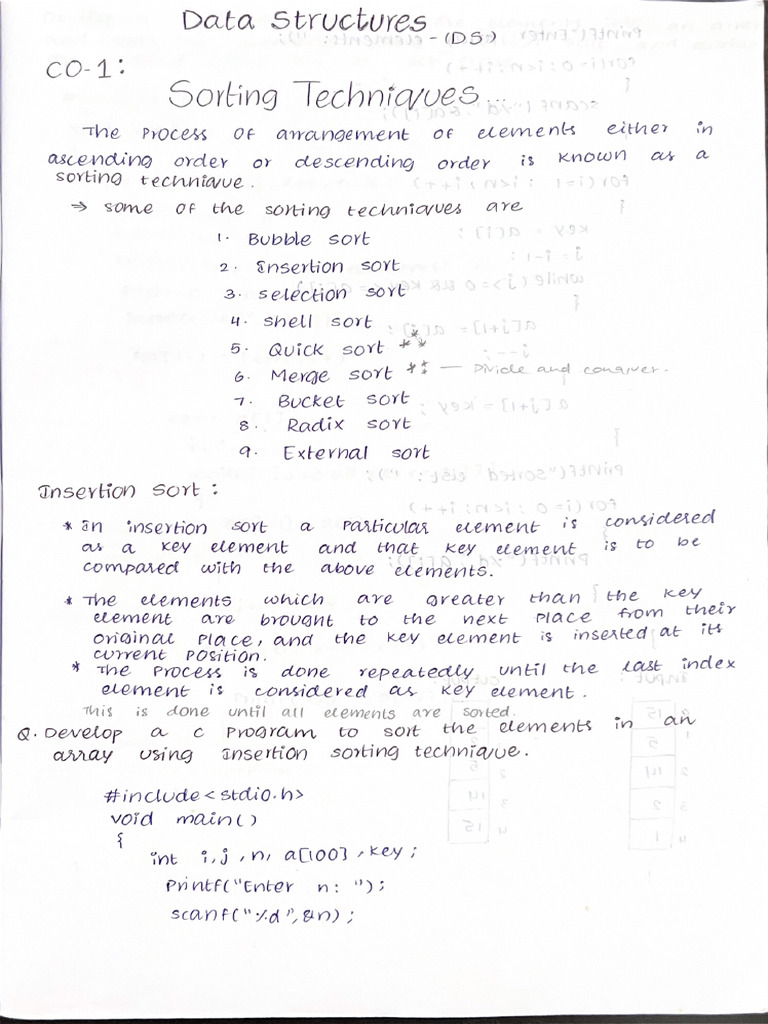 Data Structures -(DS)
CO-1:
Sorting Techniques...
The Process of arrangement of elements either in
ascending order or descending order is known as a
sorting technique.
⇒ some of the sorting techniques are
1. Bubble sort
2. Insertion sort
3. selection sort
4. shell sort
5. Quick sort ***
6. Merge sort *** — Divide and conquer.
7. Bucket sort
8. Radix sort
9. External sort
Insertion sort:
* In insertion sort a particular element is considered
as a key element and that key element is to be
compared with the above elements.
* The elements which are greater than the key
element are brought to the next place from their
original place, and the key element is inserted at its
current position.
* The process is done repeatedly until the last index
element is considered as key element.
This is done until all elements are sorted.
Q. Develop a C program to sort the elements in an
array using Insertion sorting technique.
#include<stdio.h>
void main()
{
int i,j,n, a[100], key;
printf("Enter n: ");
scanf("%d",&n);